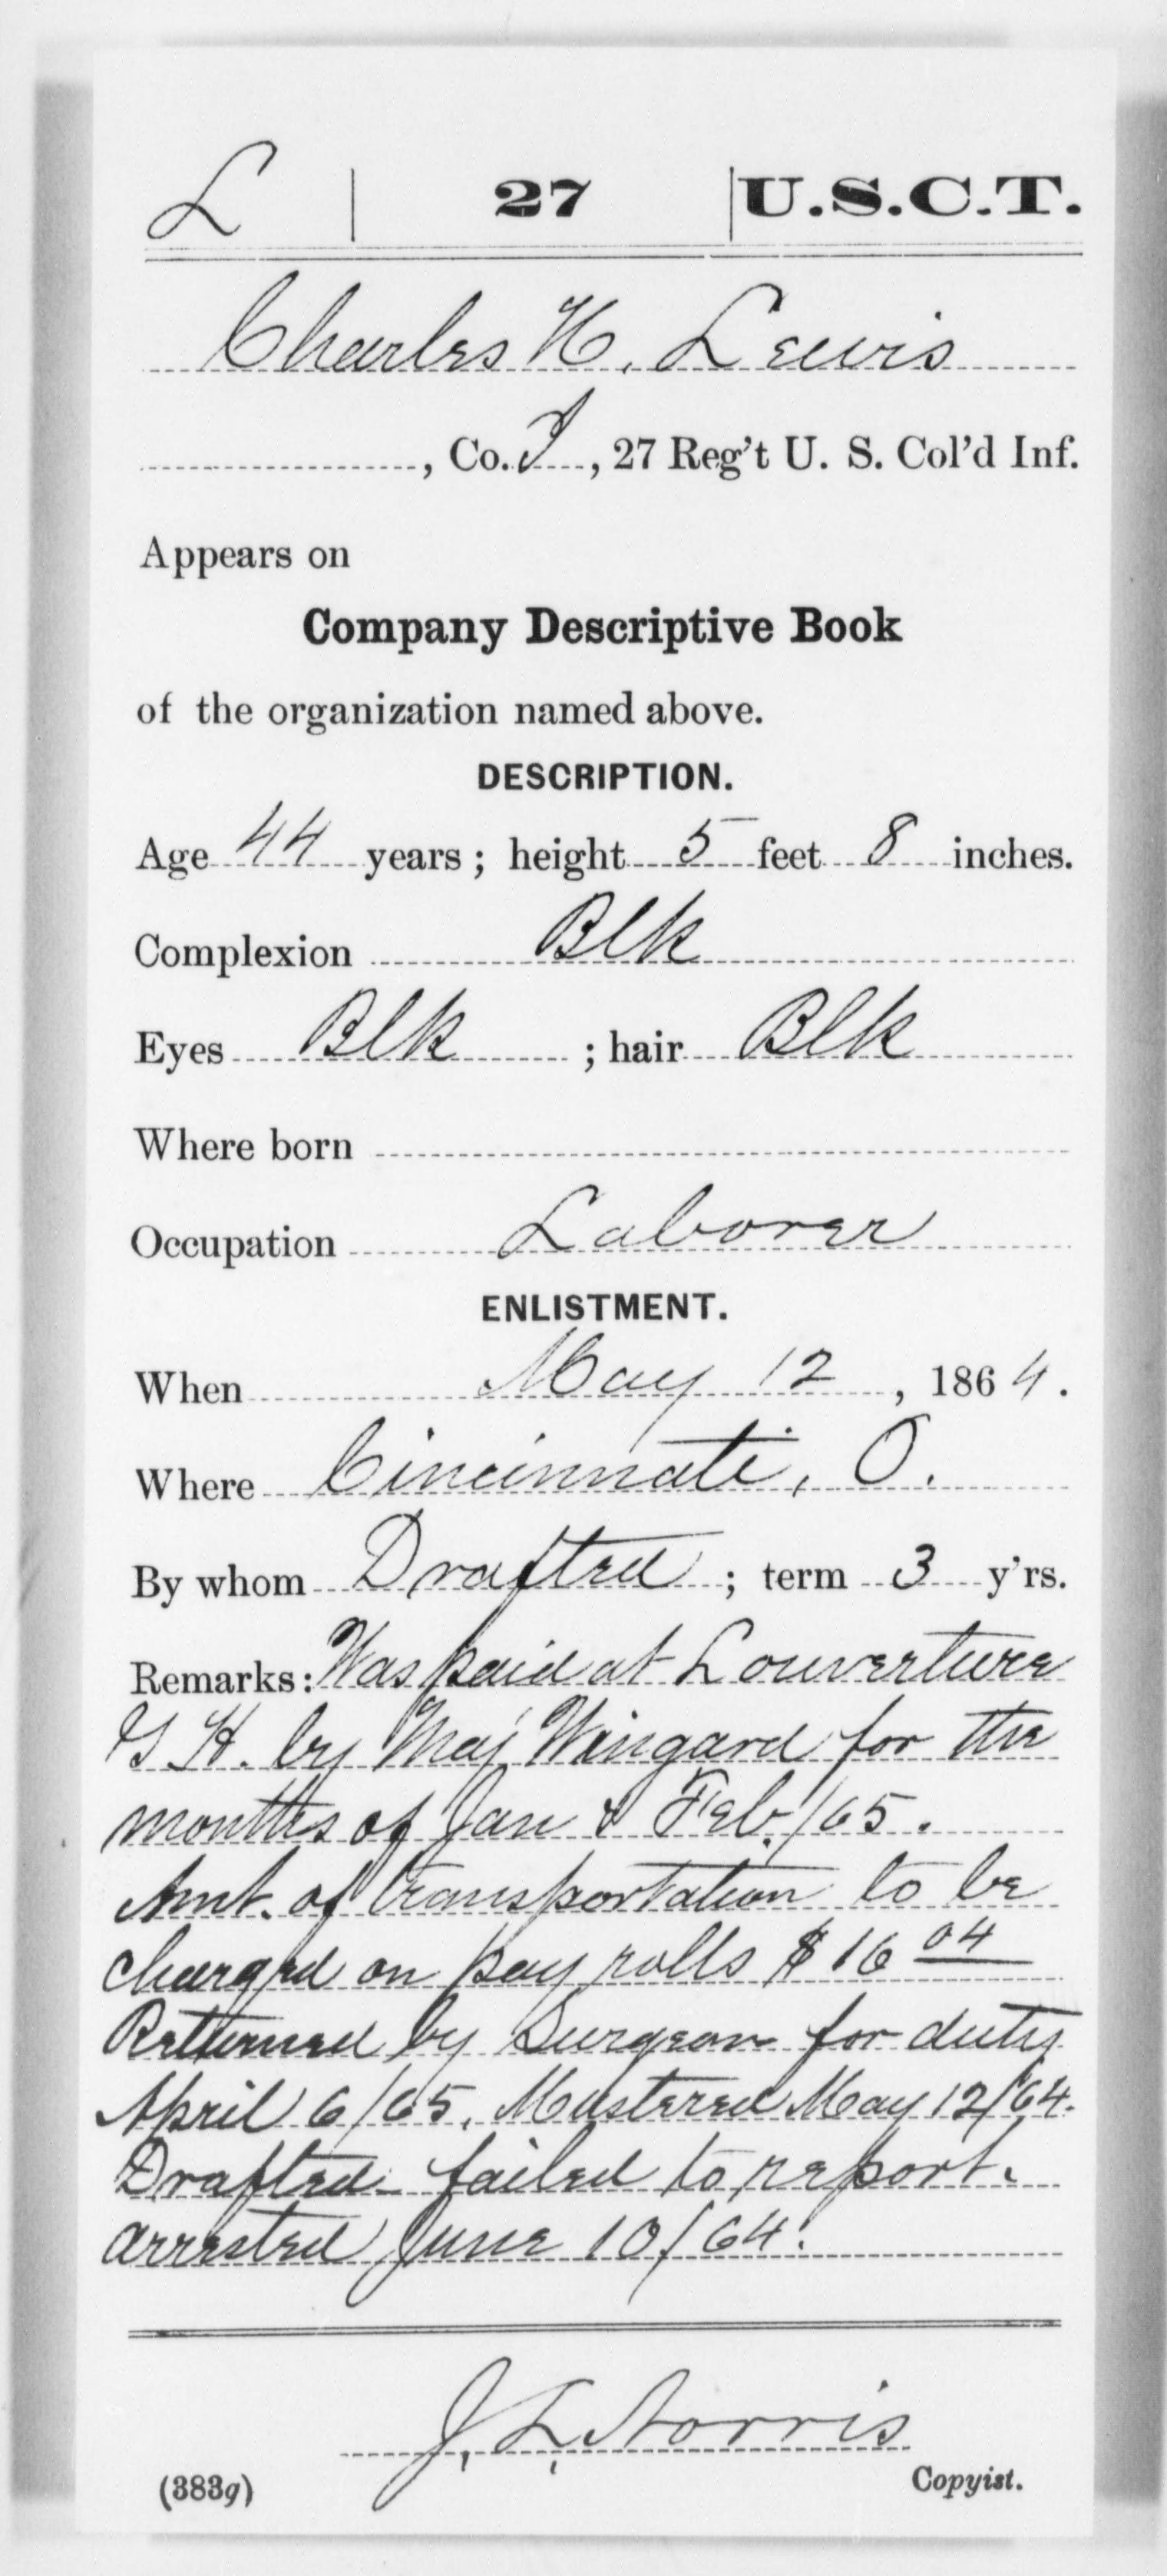 L | 27 | U.S.C.T.
Charles H. Lewis
, Co. I, 27 Reg't U. S. Col'd Inf.
Appears on
Company Descriptive Book
of the organization named above.
DESCRIPTION.
Age 44 years; height 5 feet 8 inches.
Complexion Blk
Eyes Blk; hair Blk
Where born
Occupation Laborer
ENLISTMENT.
When May 12, 1864.
Where Cincinnati, O.
By whom Drafted; term 3 y'rs.
Remarks: Was paid at Louverture
G H. by Maj Wingard for the
months of Jan & Feb./65.
Amt. of transportation to be
charged on pay rolls $16 04
Returned by Surgeon for duty
April 6/65. Mustered May 12/64.
Drafted failed to report.
arrested June 10/64.
J. L. Norris
(383g) Copyist.